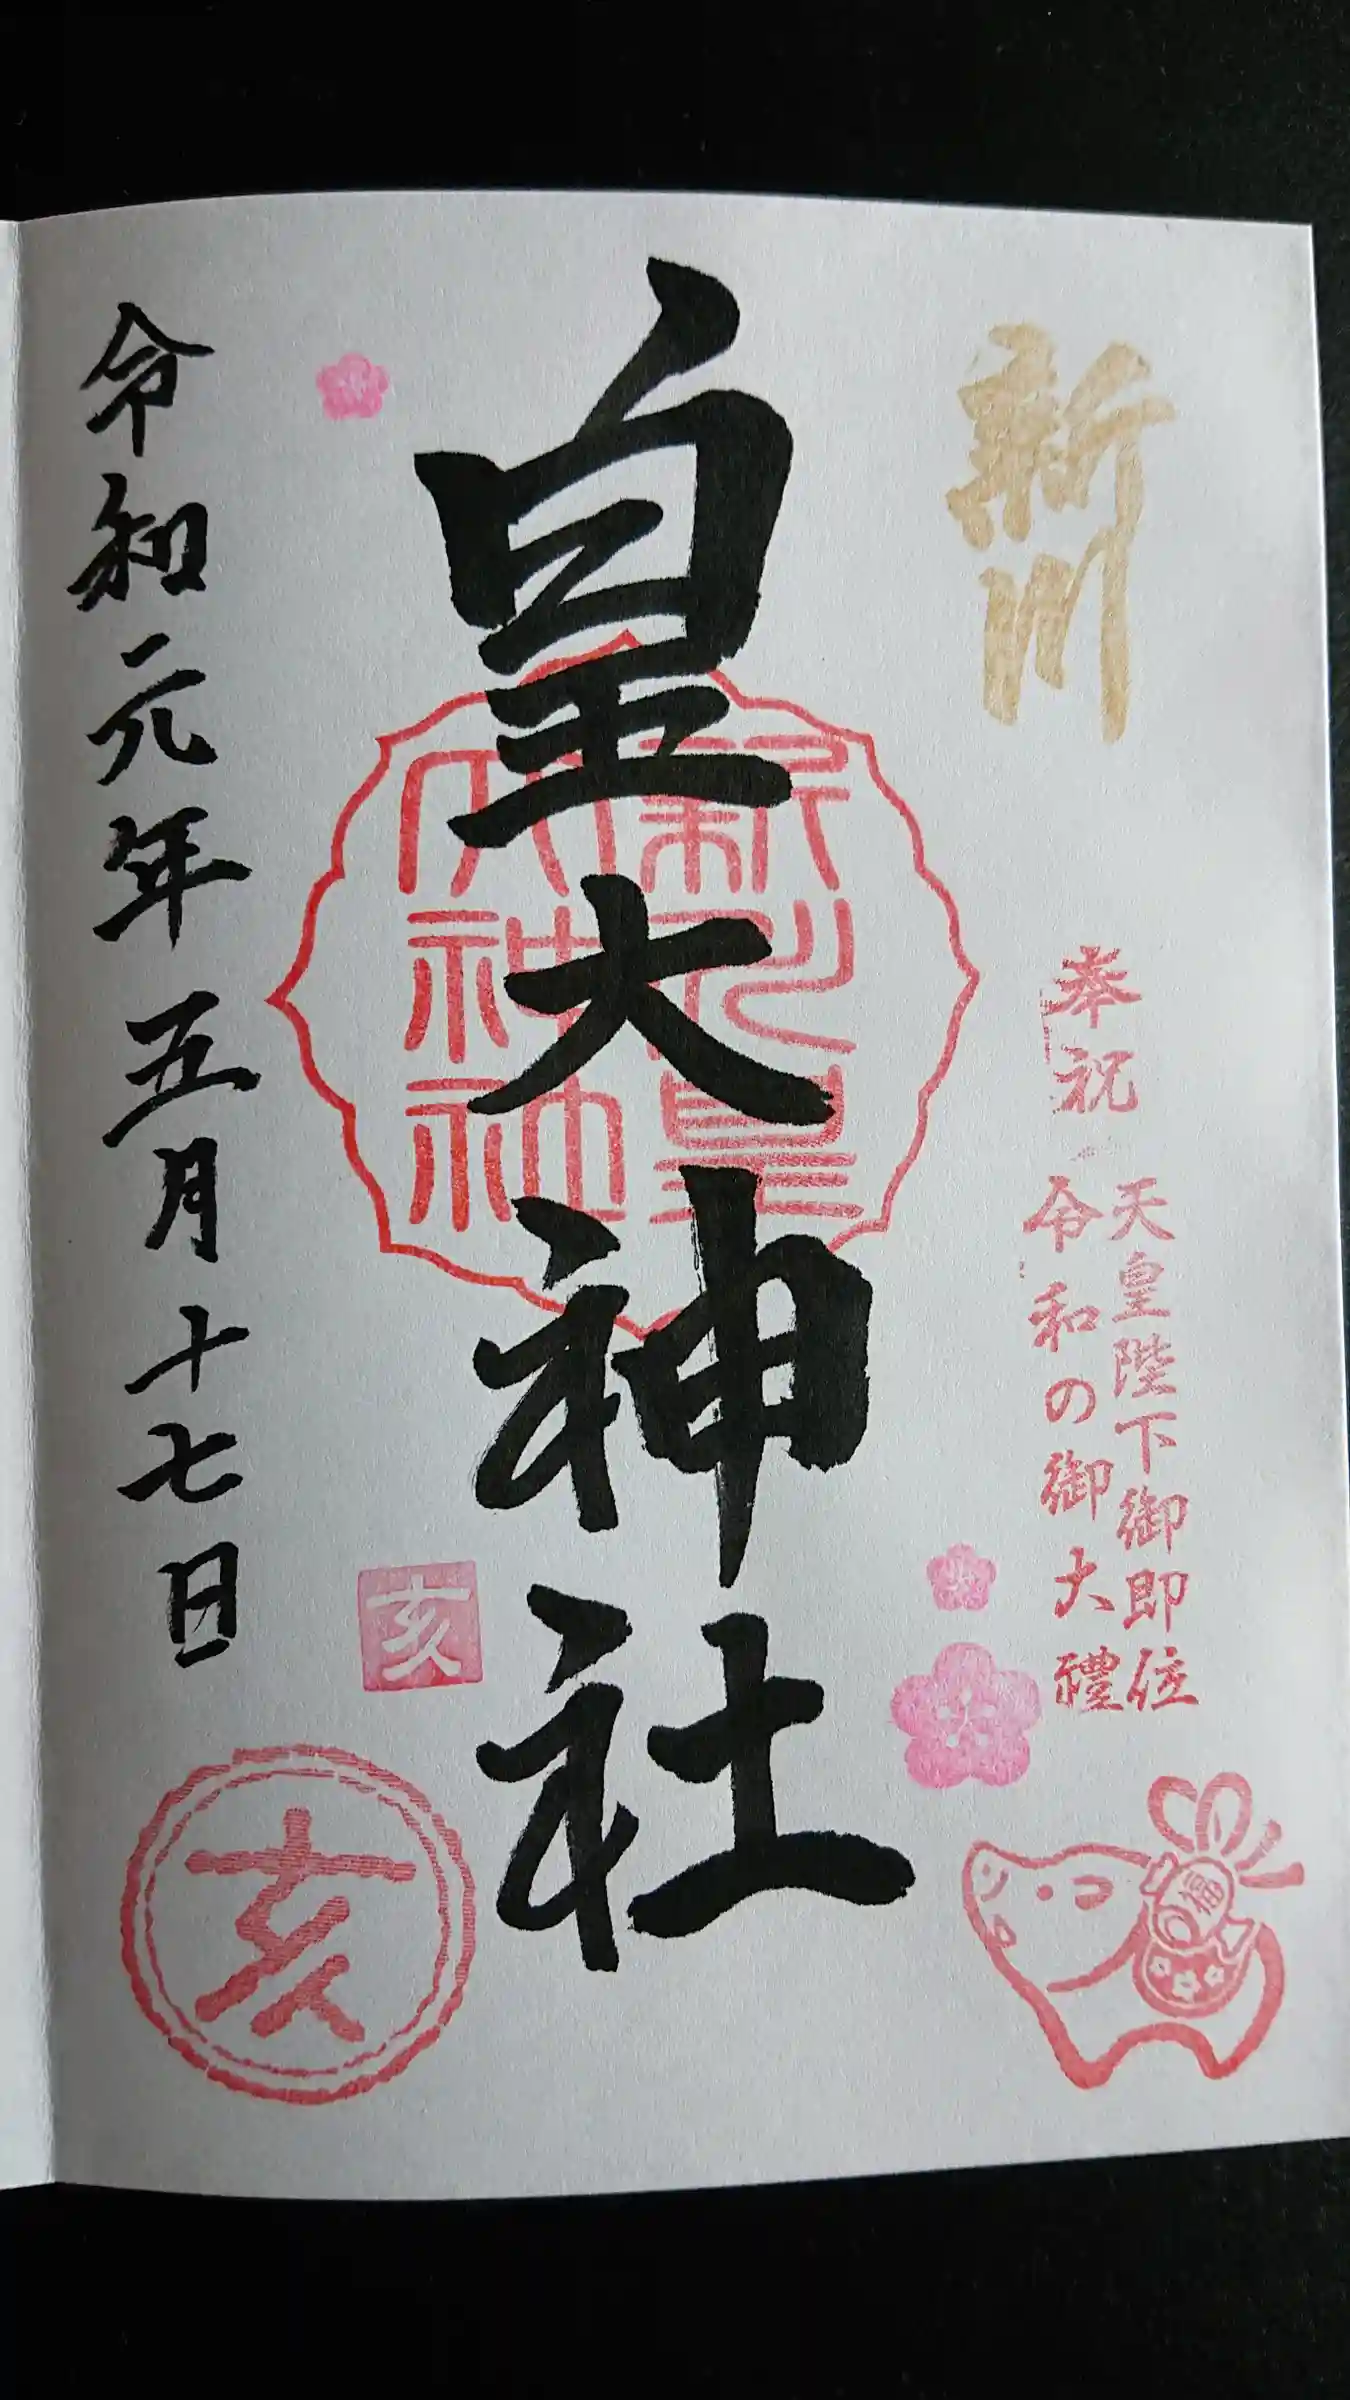 新川
奉祝
天皇陛下御即位
令和の御大禮
皇大神社
新川皇
大神社
亥
令和元年五月十七日
亥
福